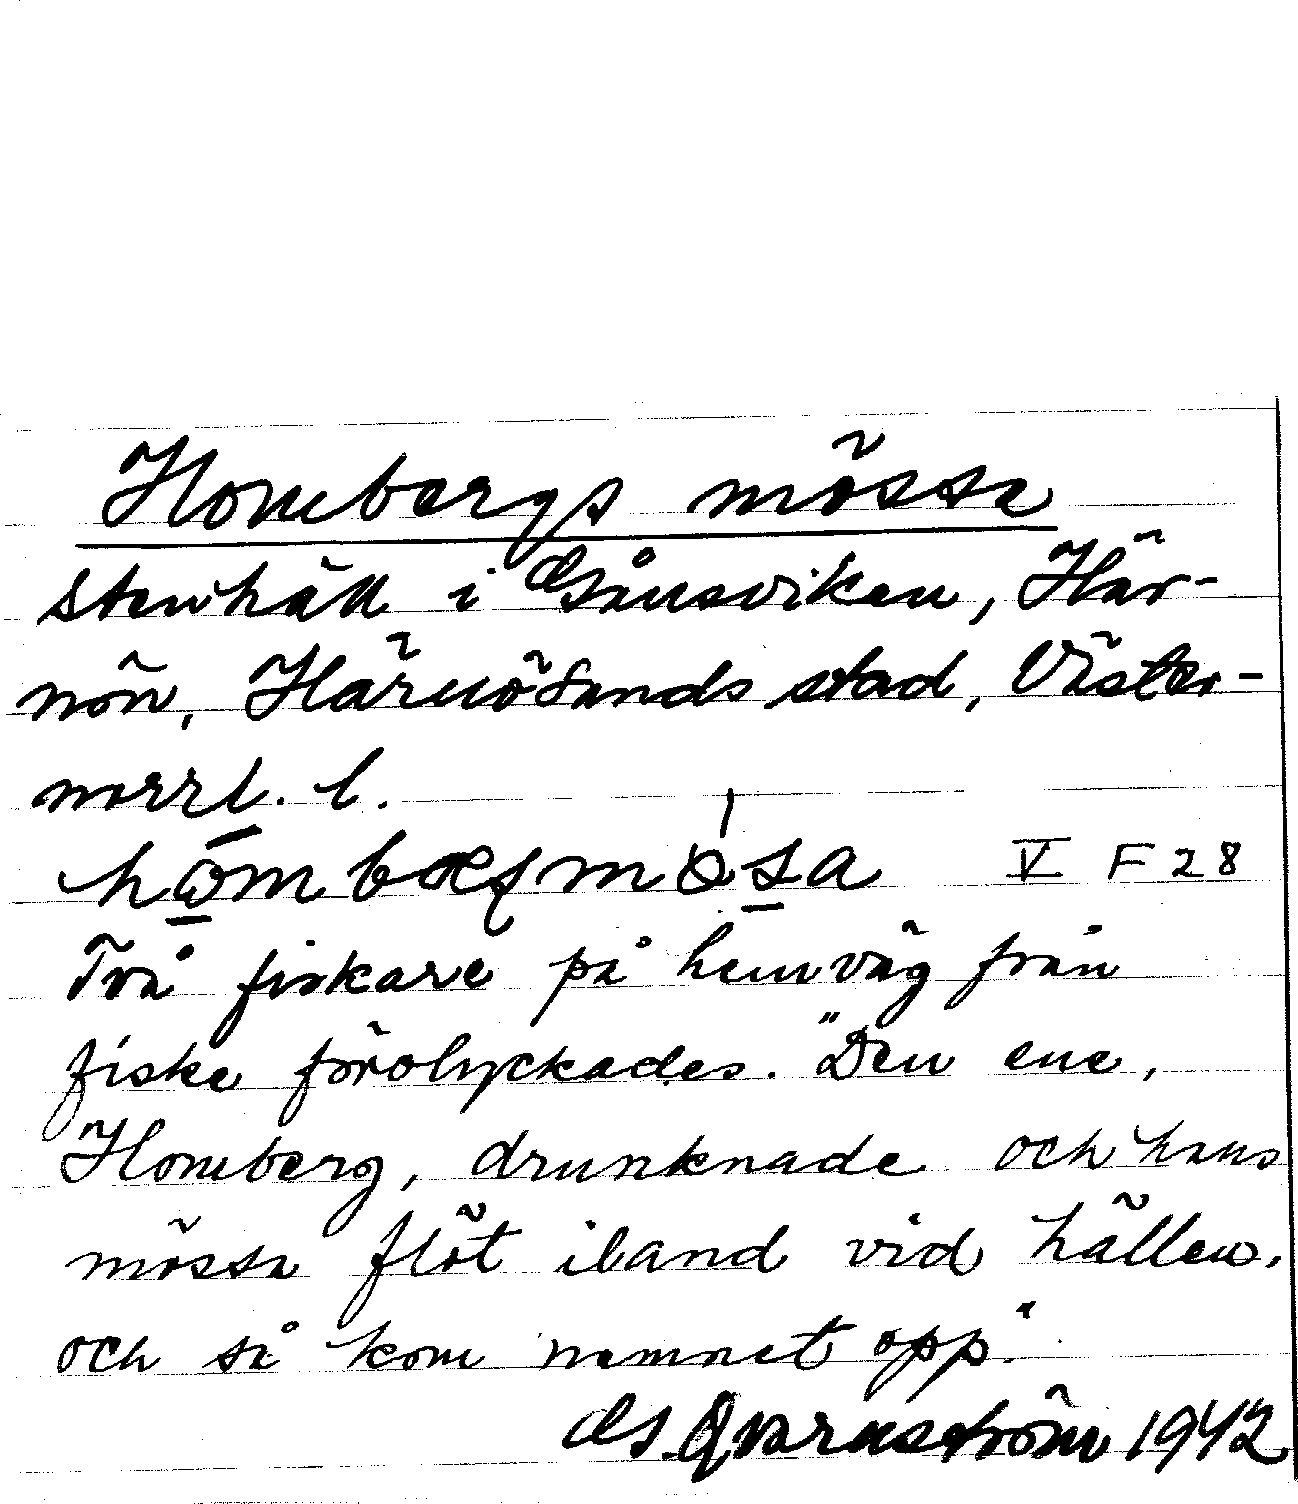 Hombergs mössa
Stenhäll i Gånsviken, Här-
nön, Härnösands stad, Väster-
norrl. l.
V F 28
Två fiskare på hemväg från
fiske förolyckades. "Den ene,
Homberg, drunknade och hans
mössa flöt iland vid hällen,
och så kom namnet opp".
G. Qvarnström 1942